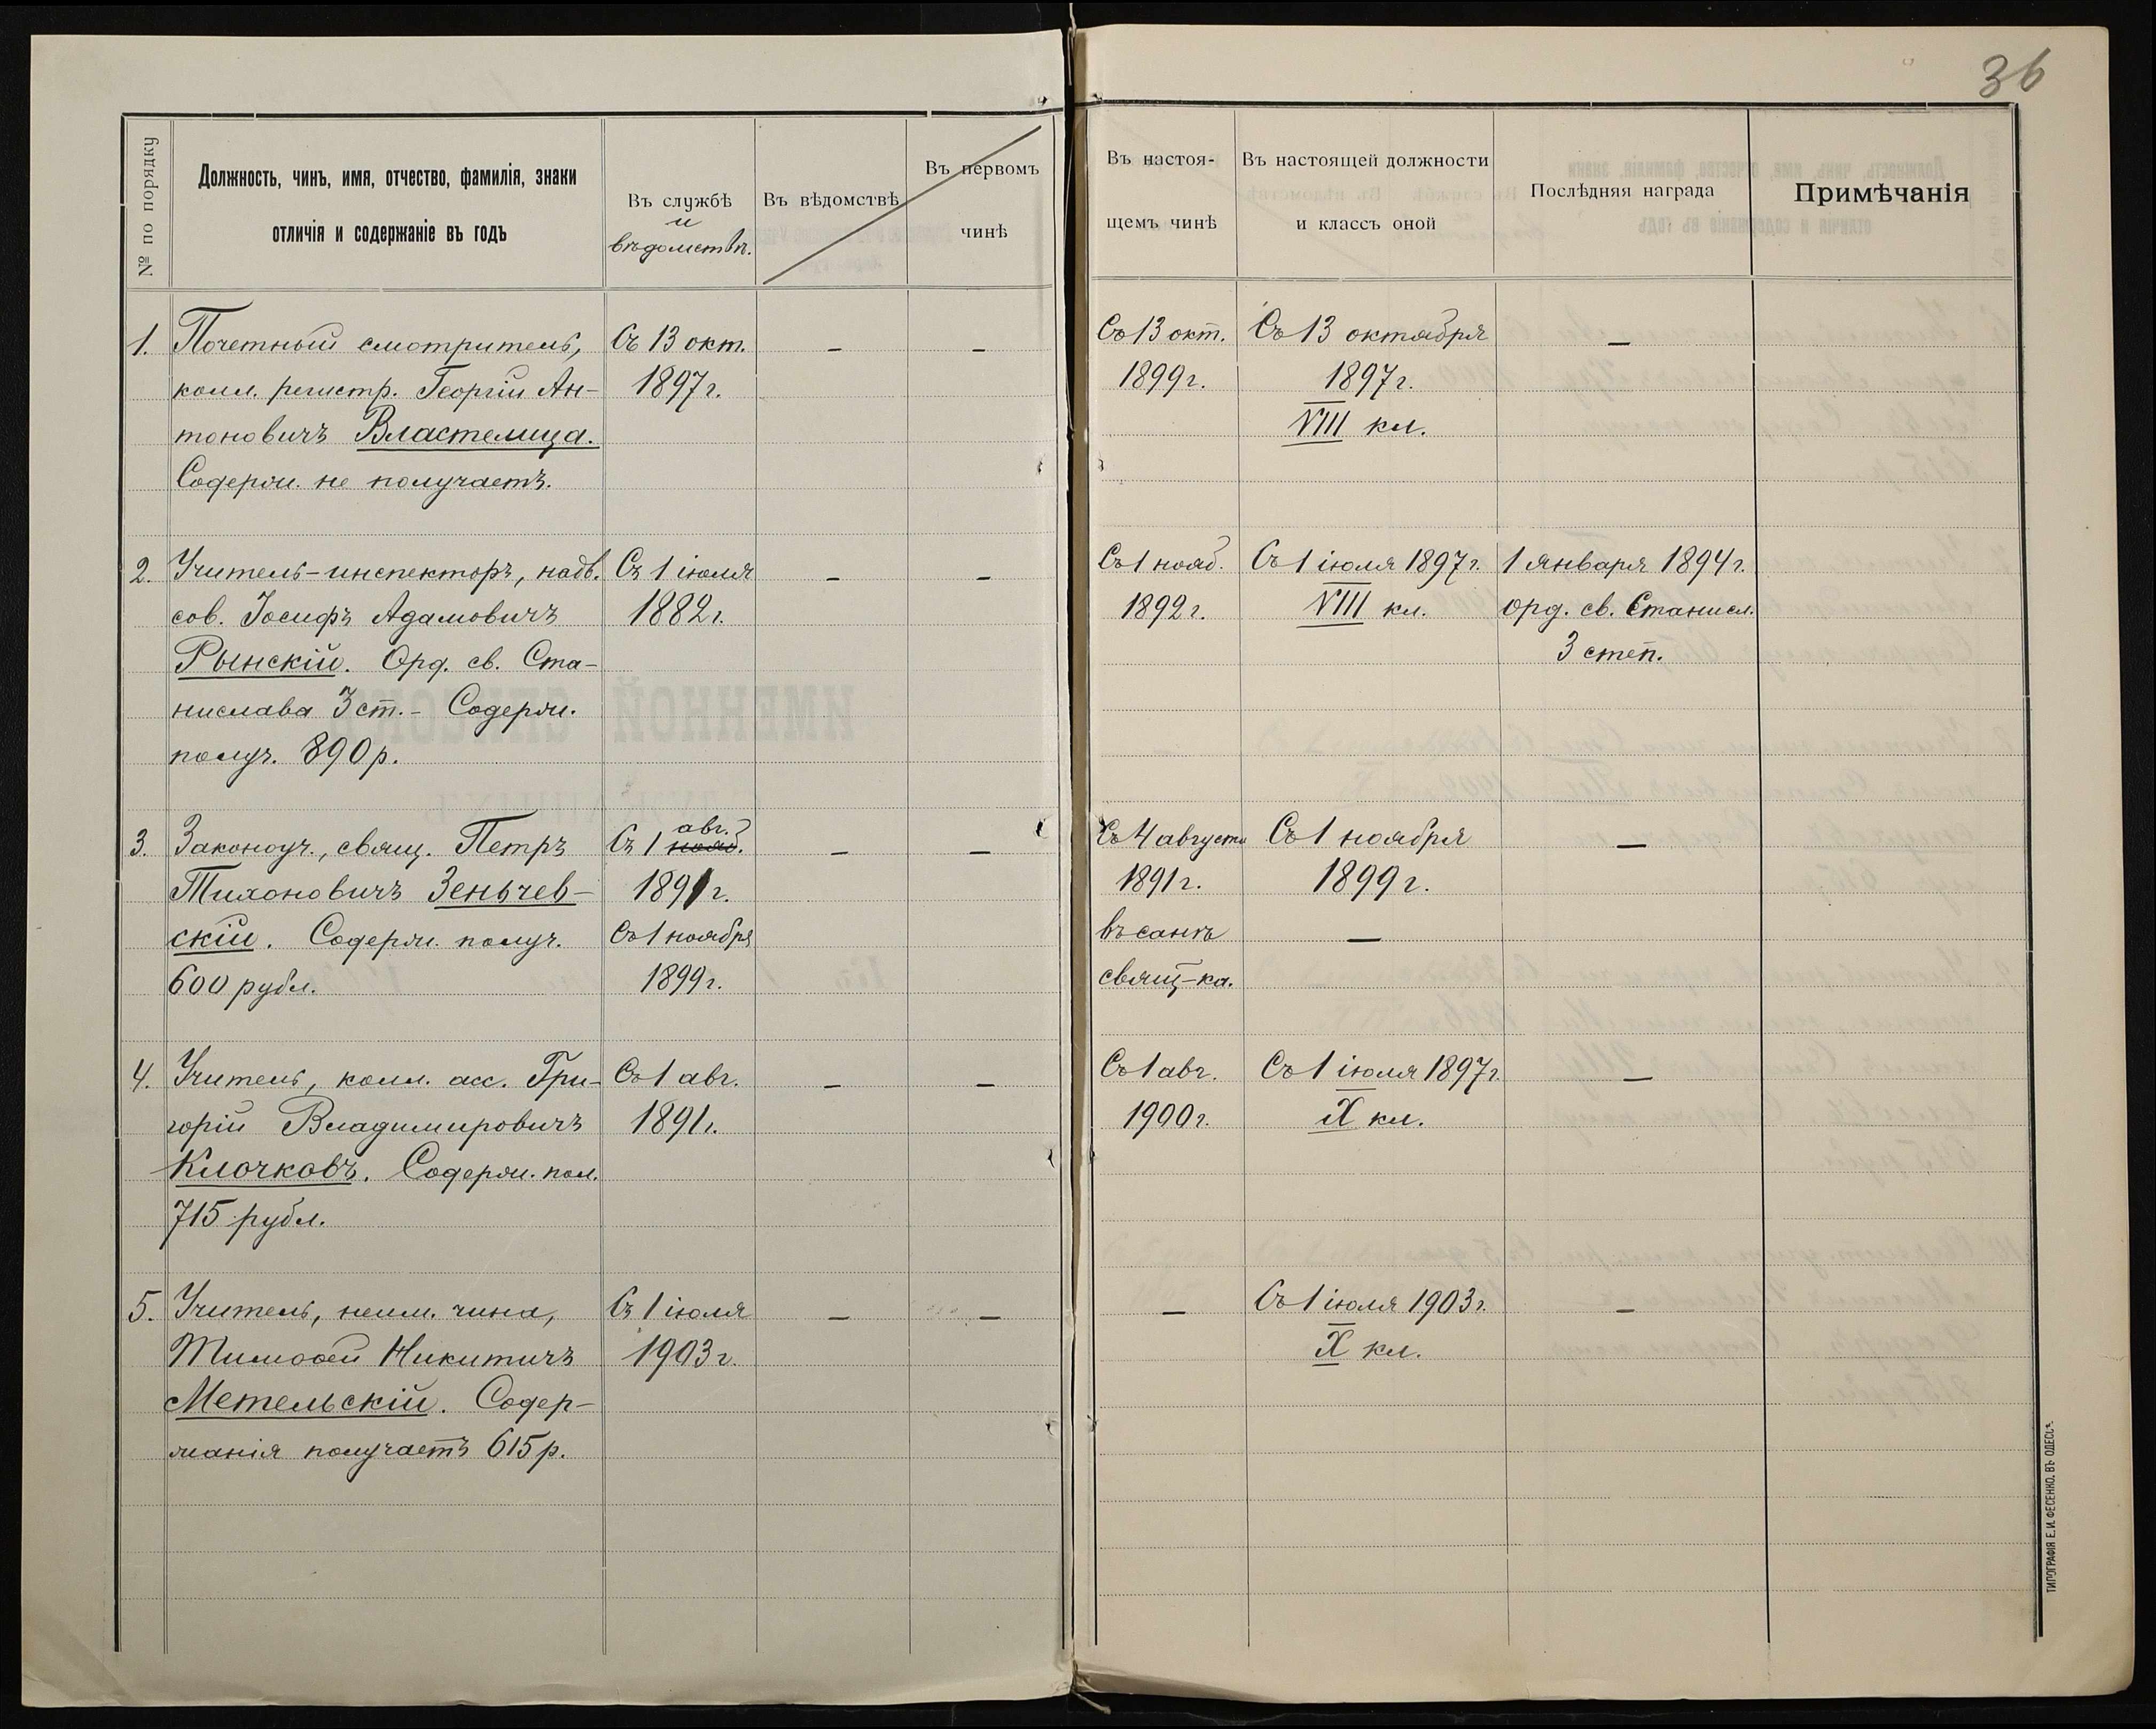 36
№ по порядку
Должность, чинъ, имя, отчество, фамилія, знаки
отличія и содержаніе въ годъ
Въ службѣ
и
вѣдомствѣ.
Въ вѣдомствѣ
Въ первомъ
чинѣ
Въ настоя-
щемъ чинѣ
Въ настоящей должности
и классъ оной
Послѣдняя награда
Примѣчанія
1. Почетный смотритель, Съ 13 окт. — — Съ 13 окт. Съ 13 октября —
колл. регистр. Георгій Ан- 1897 г. 1899 г. 1897 г.
тоновичъ Властелица. VIII кл.
Содерж. не получаетъ.
2. Учитель-инспекторъ, надв. Съ 1 іюля — — Съ 1 нояб. Съ 1 іюля 1897 г. 1 января 1894 г.
сов. Іосифъ Адамовичъ 1882 г. 1892 г. VIII кл. орд. св. Станисл.
Рынскій. Орд. св. Ста- 3 степ.
нислава 3 ст. - Содерж.
получ. 890 р.
3. Законоуч., свящ. Петръ Съ 1 нояб. авг. — — Съ 4 августа Съ 1 ноября —
Тихоновичъ Зеньчев- 1891 г. 1891 г. 1899 г.
скій. Содерж. получ. Съ 1 ноября въ санѣ —
600 рубл. 1899 г. свящ-ка.
4. Учитель, колл. асс. Гри- Съ 1 авг. — — Съ 1 авг. Съ 1 іюля 1897 г. —
горій Владимировичъ 1891 г. 1900 г. X кл.
Клочковъ. Содерж. пол.
715 рубл.
5. Учитель, неим. чина, Съ 1 іюля — — — Съ 1 іюля 1903 г. —
Тимоѳей Никитичъ 1903 г. X кл.
Метельскій. Содер-
жанія получаетъ 615 р.
ТИПОГРАФІЯ Е. И. ФЕСЕНКО, ВЪ ОДЕССѢ.